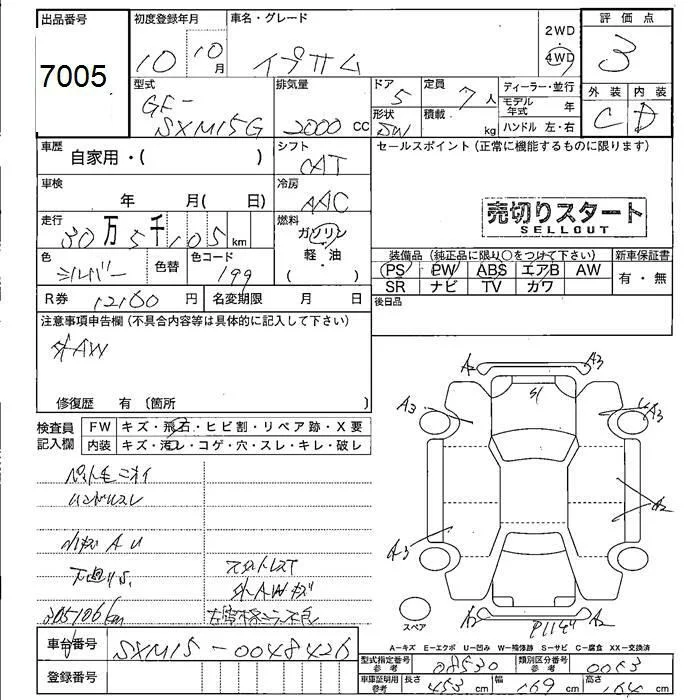 出品番号
7005
初度登録年月
10 10 月
車名・グレード
イプサム
2WD
4WD
評価点
3
外装 内装
C D
型式
GF-
SXM15G
排気量
2000 cc
ドア
5
形状
SW
定員
7 人
積載
kg
ディーラー・並行
モデル年式 年
ハンドル 左・右
車歴
自家用・( )
シフト
CAT
セールスポイント (正常に機能するものに限ります)
車検
年 月( 日)
冷房
AAC
走行
30 万 5 千 105 km
燃料
ガソリン
軽・油
( )
売切りスタート
SELLOUT
色
シルバー
色替
色コード
199
装備品 (純正品に限り○をつけて下さい)
新車保証書
PS PW ABS エアB AW
SR ナビ TV カワ
有・無
R券 12160 円
名変期限 月 日
後日品
注意事項申告欄 (不具合内容等は具体的に記入して下さい)
外AW
修復歴 有 (箇所 )
検査員
記入欄
FW キズ・飛石・ヒビ割・リペア跡・X要
内装 キズ・汚レ・コゲ・穴・スレ・キレ・破レ
ペット毛ニオイ
ハンドルスレ
小キズ A U
下廻りS
305106km
外AWキズ
A2 A3
S1
A3 A3
A2
A3
A2 P1 A2
スペア
A-キズ E-エクボ U-凹み W-補修跡 S-サビ C-腐食 XX-交換済
車台番号
SXM15-0048426
登録番号
型式指定番号 参考 08530
類別区分番号 参考 0063
車庫証明用 参考 長さ 453 cm 幅 169 cm 高さ 164 cm